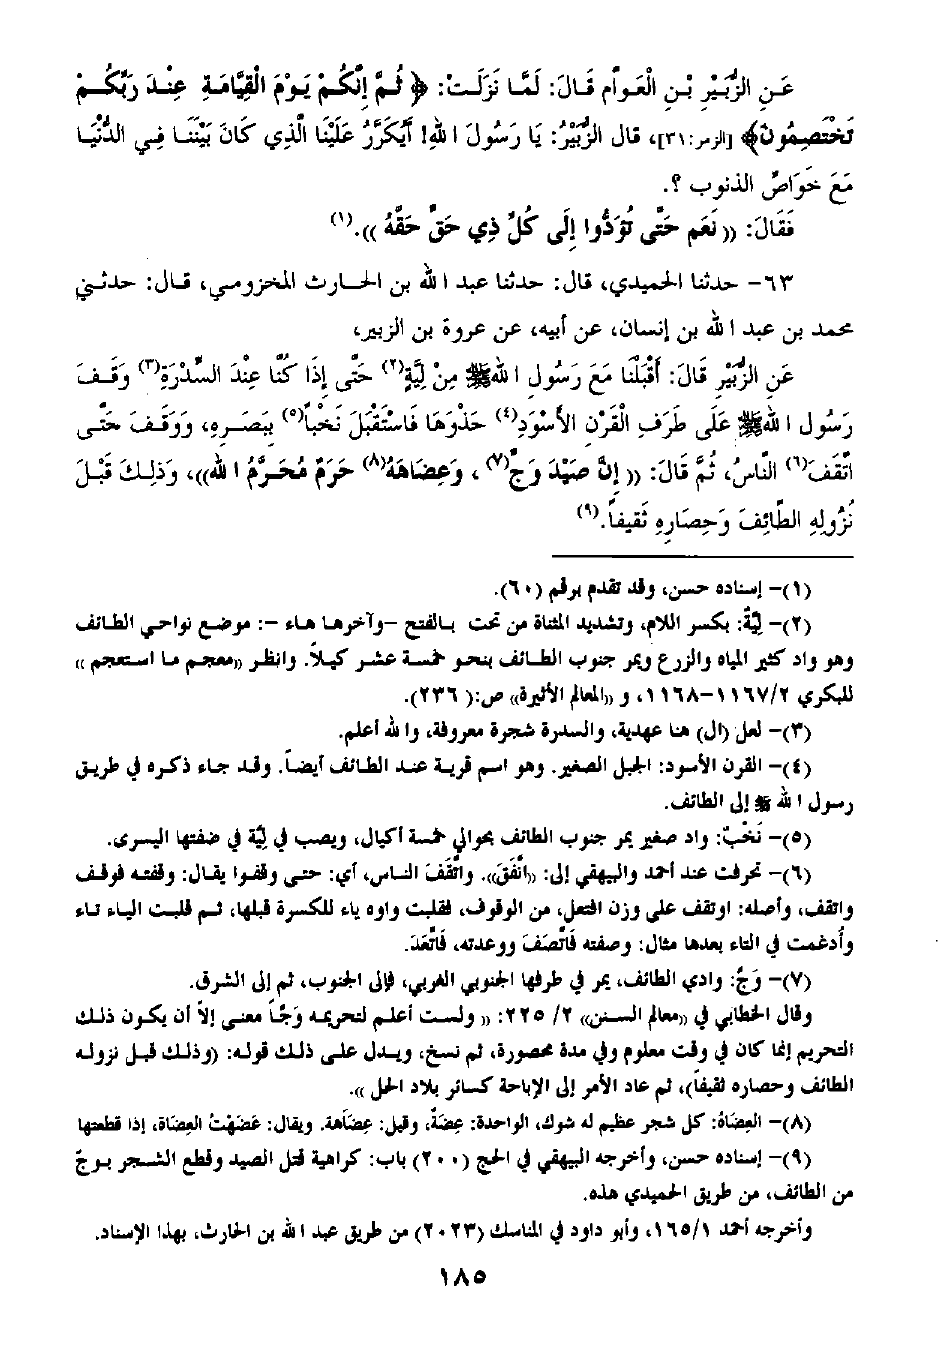 عَنِ الزُّبَيْرِ بْنِ الْعَوَّامِ قَالَ: لَمَّا نَزَلَتْ: ﴿ ثُمَّ إِنَّكُمْ يَوْمَ الْقِيَامَةِ عِنْدَ رَبِّكُمْ
تَخْتَصِمُونَ﴾ [الزمر:٣١]، قال الزُّبَيْرُ: يَا رَسُولَ اللهِ! أَيُكَرَّرُ عَلَيْنَا الَّذِي كَانَ بَيْنَنَا فِي الدُّنْيَا
مَعَ خَوَاصِّ الذنوب ؟.
فَقَالَ: (( نَعَم حَتَّى تُؤَدُّوا إِلَى كُلِّ ذِي حَقٍّ حَقَّهُ )).(١)
٦٣- حدثنا الحميدي، قال: حدثنا عبد الله بن الحارث المخزومي، قال: حدثني
محمد بن عبد الله بن إنسان، عن أبيه، عن عروة بن الزبير،
عَنِ الزُّبَيْرِ قَالَ: أَقْبَلْنَا مَعَ رَسُولِ اللهِ ﷺ مِنْ لِيَّةَ(٢) حَتَّى إِذَا كُنَّا عِنْدَ السِّدْرَةِ(٣) وَقَفَ
رَسُول اللهِ ﷺ عَلَى طَرَفِ الْقَرْنِ الأَسْوَدِ(٤) حَذْوَهَا فَاسْتَقْبَلَ نَخْباً(٥) بِبَصَرِهِ، وَوَقَفَ حَتَّى
اتَّقَفَ(٦) النَّاسُ، ثُمَّ قَالَ: (( إِنَّ صَيْدَ وَجٍّ(٧)، وَعِضَاهَهُ(٨) حَرَمٌ مُحَرَّمٌ الله))، وَذلِكَ قَبْلَ
نُزُولِهِ الطَّائِفَ وَحِصَارِهِ ثَقِيفاً.(٩)
(١)- إسناده حسن، وقد تقدم برقم (٦٠).
(٢)- لِيَّةُ: بكسر اللام، وتشديد المثناة من تحت بالفتح -وآخرها هاء -: موضع نواحي الطائف
وهو واد كثير المياه والزرع ويمر جنوب الطائف بنحو خمسة عشر كيلاً. وانظر ((معجم ما استعجم ))
للبكري ١١٦٧/٢-١١٦٨، و ((المعالم الأثيرة)) ص:( ٢٣٦).
(٣)- لعل (ال) هنا عهدية، والسدرة شجرة معروفة، والله أعلم.
(٤)- القرن الأسود: الجبل الصغير. وهو اسم قرية عند الطائف أيضاً. وقد جاء ذكره في طريق
رسول الله ﷺ إلى الطائف.
(٥)- نَخْبٌ: واد صغير يمر جنوب الطائف بحوالي خمسة أكيال، ويصب في لِيَّة في ضفتها اليسرى.
(٦)- تحرفت عند أحمد والبيهقي إلى: ((اتَّفَقَ)). واتَّقَفَ الناس، أي: حتى وقفوا يقال: وقفته فوقف
واتقف، وأصله: اوتقف على وزن افتعل، من الوقوف، فقلبت واوه ياء للكسرة قبلها، ثم قلبت الياء تاء
وأدغمت في التاء بعدها مثال: وصفته فَاتَّصَفَ ووعدته، فَاتَّعَدَ.
(٧)- وَجٌّ: وادي الطائف، يمر في طرفها الجنوبي الغربي، فإلى الجنوب، ثم إلى الشرق.
وقال الخطابي في ((معالم السنن)) ٢/ ٢٢٥: (( ولست أعلم لتحريمه وَجّاً معنى إلاّ أن يكون ذلك
التحريم إنما كان في وقت معلوم وفي مدة محصورة، ثم نسخ، ويدل على ذلك قوله: (وذلك قبل نزوله
الطائف وحصاره ثقيفاً)، ثم عاد الأمر إلى الإباحة كسائر بلاد الحل )).
(٨)- العِضَاهُ: كل شجر عظيم له شوك، الواحدة: عِضَةٌ، وقيل: عِضَاهة. ويقال: عَضَهْتُ العِضَاهَ، إذا قطعتها
(٩)- إسناده حسن، وأخرجه البيهقي في الحج (٢٠٠) باب: كراهية قتل الصيد وقطع الشجر بوجّ
من الطائف، من طريق الحميدي هذه.
وأخرجه أحمد ١٦٥/١، وأبو داود في المناسك (٢٠٢٣) من طريق عبد الله بن الحارث، بهذا الإسناد.
١٨٥